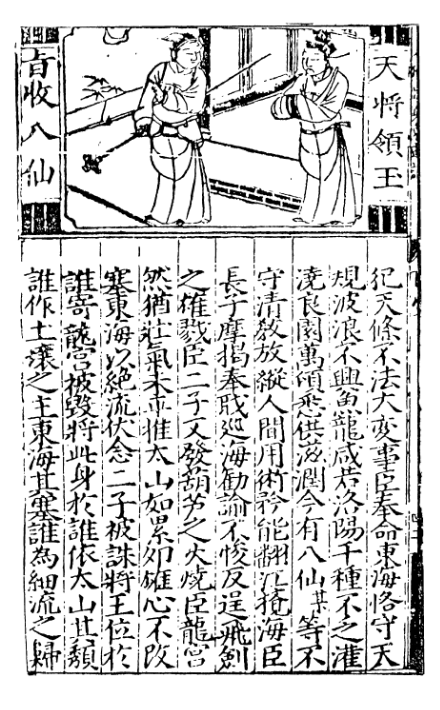 天將領王
旨收八仙
犯天條不法大变事臣奉命東海恪守天
規波浪不興魚龍咸若洛陽千種不之灌
澆良園萬頃悉供滋潤今有八仙某等不
守清教放縱人間用術矜能翻江搅海臣
長子摩揭奉戝巡海勸諭不悛反逞飛劍
之雄戮臣二子又發葫芦之火燒臣龍宮
然猶壯氣未平推太山如累卵雄心不改
塞東海以絕流伏念二子被誅將王位於
誰寄龍宮被毀將此身於誰依太山其頹
誰作土壤之主東海其塞誰為細流之歸